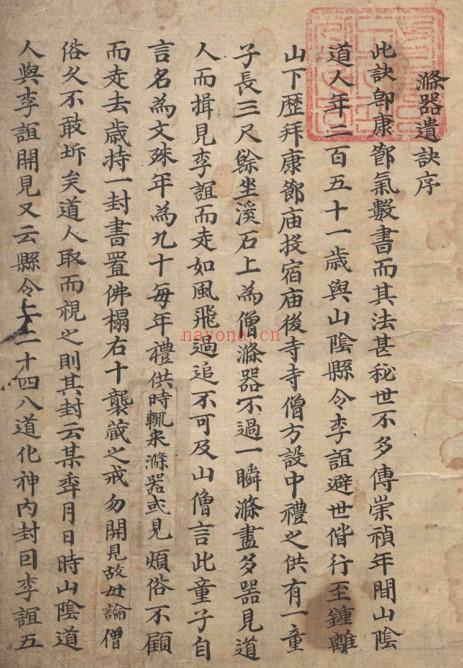 滌器遺訣序
此訣卽康節氣數書而其法甚秘世不多傳崇禎年間山陰
道人年二百五十一歲與山陰縣令李誼避世偕行至鍾離
山下歷拜康節庙投宿庙後寺寺僧方設中禮之供有一童
子長三尺餘坐溪石上為僧滌器不過一瞬滌盡多器見道
人而揖見李誼而走如風飛過追不可及山僧言此童子自
言名為文殊年為九十每年禮供時輒来滌器或見煩俗不顧
而走去歲持一封書置佛榻右十襲蔵之戒勿開見故毋論僧
俗久不敢坼矣道人取而視之則其封云某年月日時山陰道
人與李誼開見又云縣令上二十四八道化神內封曰李誼五
nayona.cn